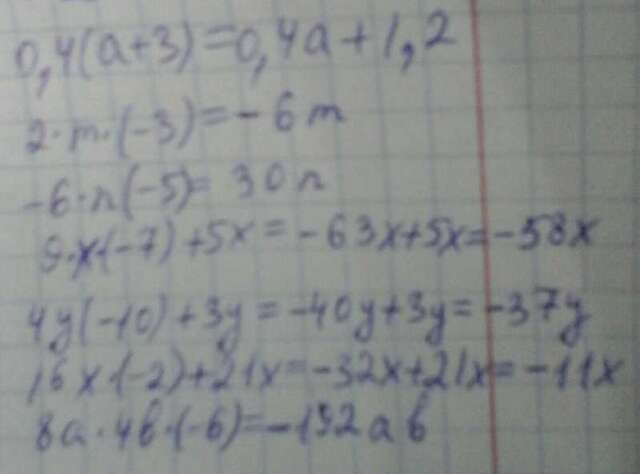 0,4(a+3)=0,4a+1,2
2·m·(-3)=-6m
-6·n(-5)=30n
9·x·(-7)+5x=-63x+5x=-58x
4y(-10)+3y=-40y+3y=-37y
16x·(-2)+21x=-32x+21x=-11x
8a·4b·(-6)=-192ab